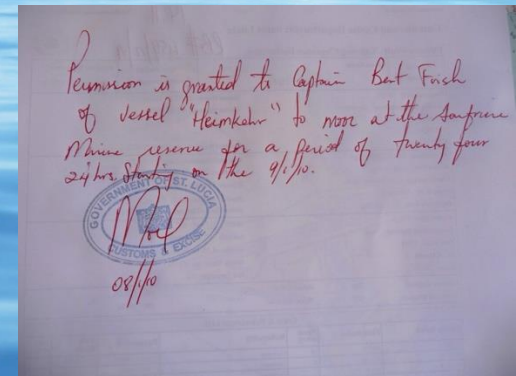 Permission is granted to Captain Bert Frish
of Vessel "Heimkehr" to moor at the Soufriere
Marine reserve for a period of twenty four
24 hrs. Starting on the 9/1/10.
GOVERNMENT OF ST. LUCIA
CUSTOMS & EXCISE
08/1/10